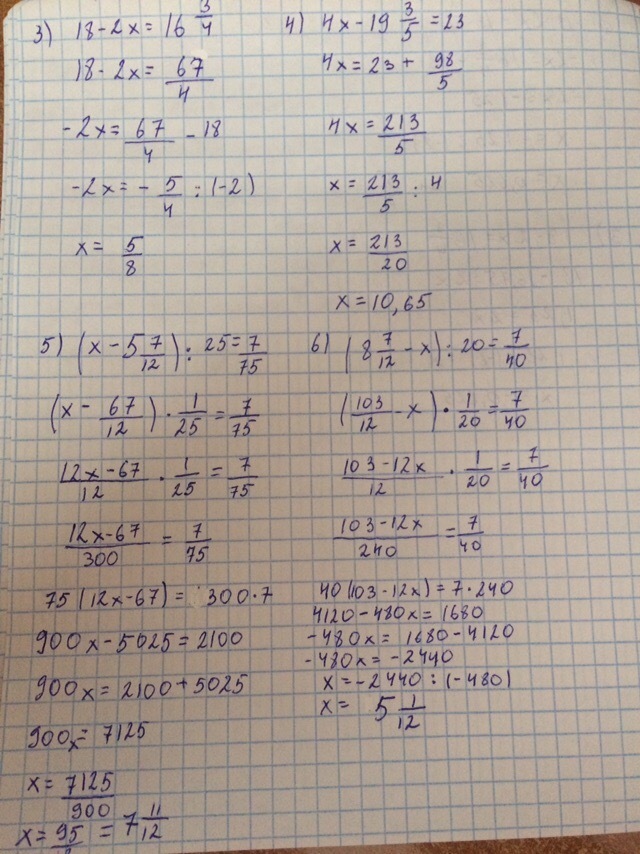 3) 18-2x= 16 3/4
18-2x= 67/4
-2x= 67/4 - 18
-2x= - 5/4 : (-2)
x= 5/8
4) 4x-19 3/5 =23
4x=23+ 98/5
4x= 213/5
x= 213/5 : 4
x= 213/20
x=10,65
5) (x-5 7/12) : 25= 7/75
(x- 67/12) · 1/25 = 7/75
12x-67/12 · 1/25 = 7/75
12x-67/300 = 7/75
75(12x-67)= 300·7
900x-5025=2100
900x=2100+5025
900x= 7125
x= 7125/900
x= 95/ = 7 11/12
6) (8 7/12 -x) : 20= 7/40
(103/12 -x) · 1/20 = 7/40
103-12x/12 · 1/20 = 7/40
103-12x/240 = 7/40
40(103-12x)=7·240
4120-480x=1680
-480x= 1680-4120
-480x= -2440
x=-2440:(-480)
x= 5 1/12